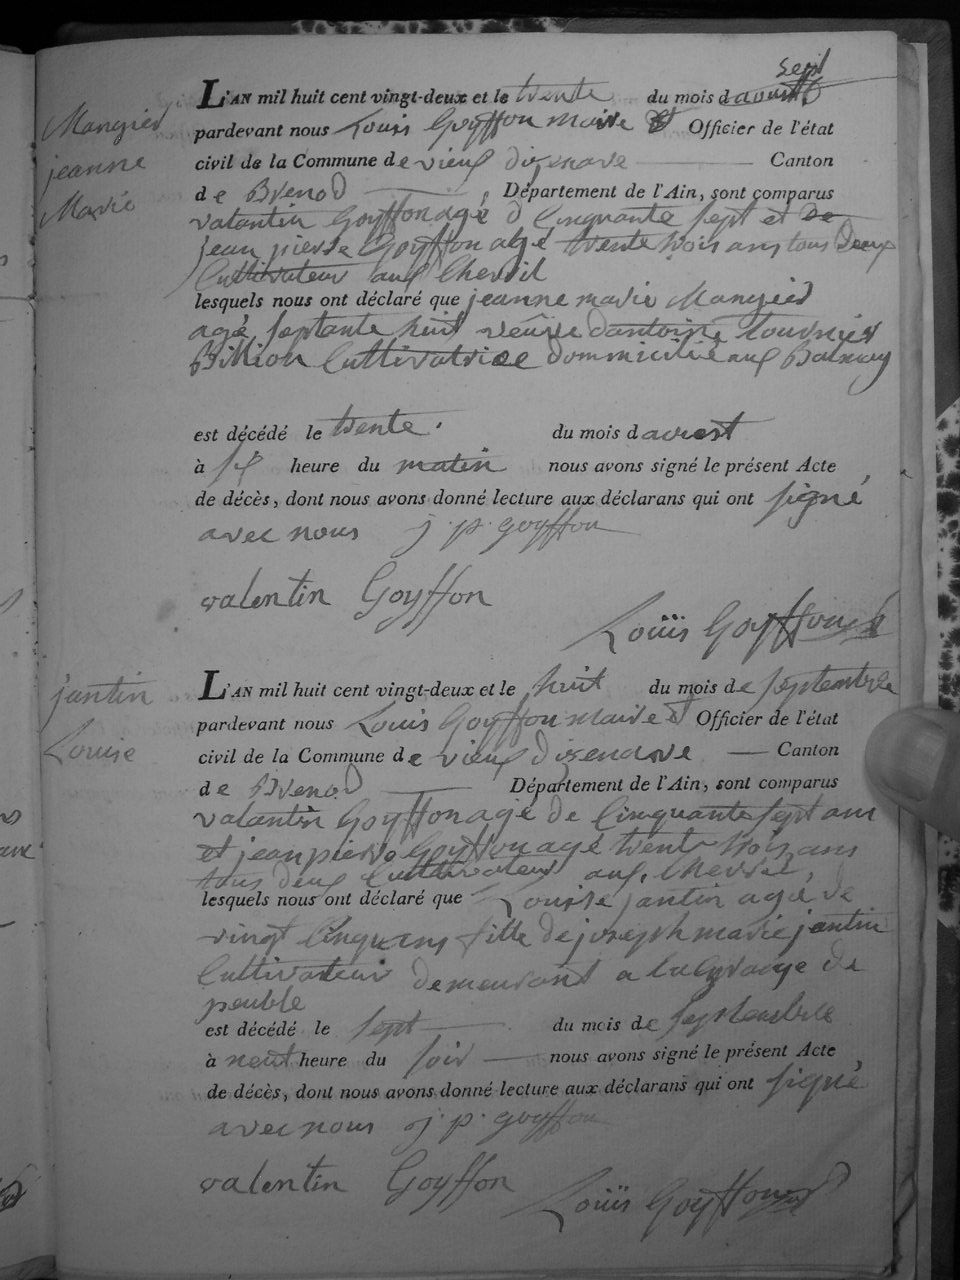 Sept
L'AN mil huit cent vingt-deux et le trente du mois d'aoust
Mangier
jeanne
Marie
pardevant nous Louis Goyffon maire et Officier de l'état
civil de la Commune de vieux dizenave Canton
de Brenod Département de l'Ain, sont comparus
valantin Goyffon agé d Cinquante sept et de
jean pierre Goyffon agé trente trois ans tous deux
Cultivateur aux Chevril
lesquels nous ont déclaré que jeanne marie Mangier
agé septante huit veuve dantoine tournier
Billion Cultivatrice dommicilié aux
est décédé le trente. du mois d aoust
à six heure du matin nous avons signé le présent Acte
de décès, dont nous avons donné lecture aux déclarans qui ont signé
avec nous j. p. goyffon
valentin Goyffon
Louïs Goyffon
jantin
Louise
L'AN mil huit cent vingt-deux et le huit du mois de septembre
pardevant nous Louis Goyffon maire et Officier de l'état
civil de la Commune de vieux dizenave Canton
de Brenod Département de l'Ain, sont comparus
valantin Goyffon agé de Cinquante sept ans
et jean pierre Goyffon agé trente trois ans
tous deux Cultivateur aux
lesquels nous ont déclaré que Louise jantin agé de
vingt Cinq ans fille de joseph marie jantin
Cultivateur demeurant a la Grange de
peuble
est décédé le sept du mois de septembre
à neuf heure du soir nous avons signé le présent Acte
de décès, dont nous avons donné lecture aux déclarans qui ont signé
avec nous j. p. goyffon
valentin Goyffon
Louïs Goyffon